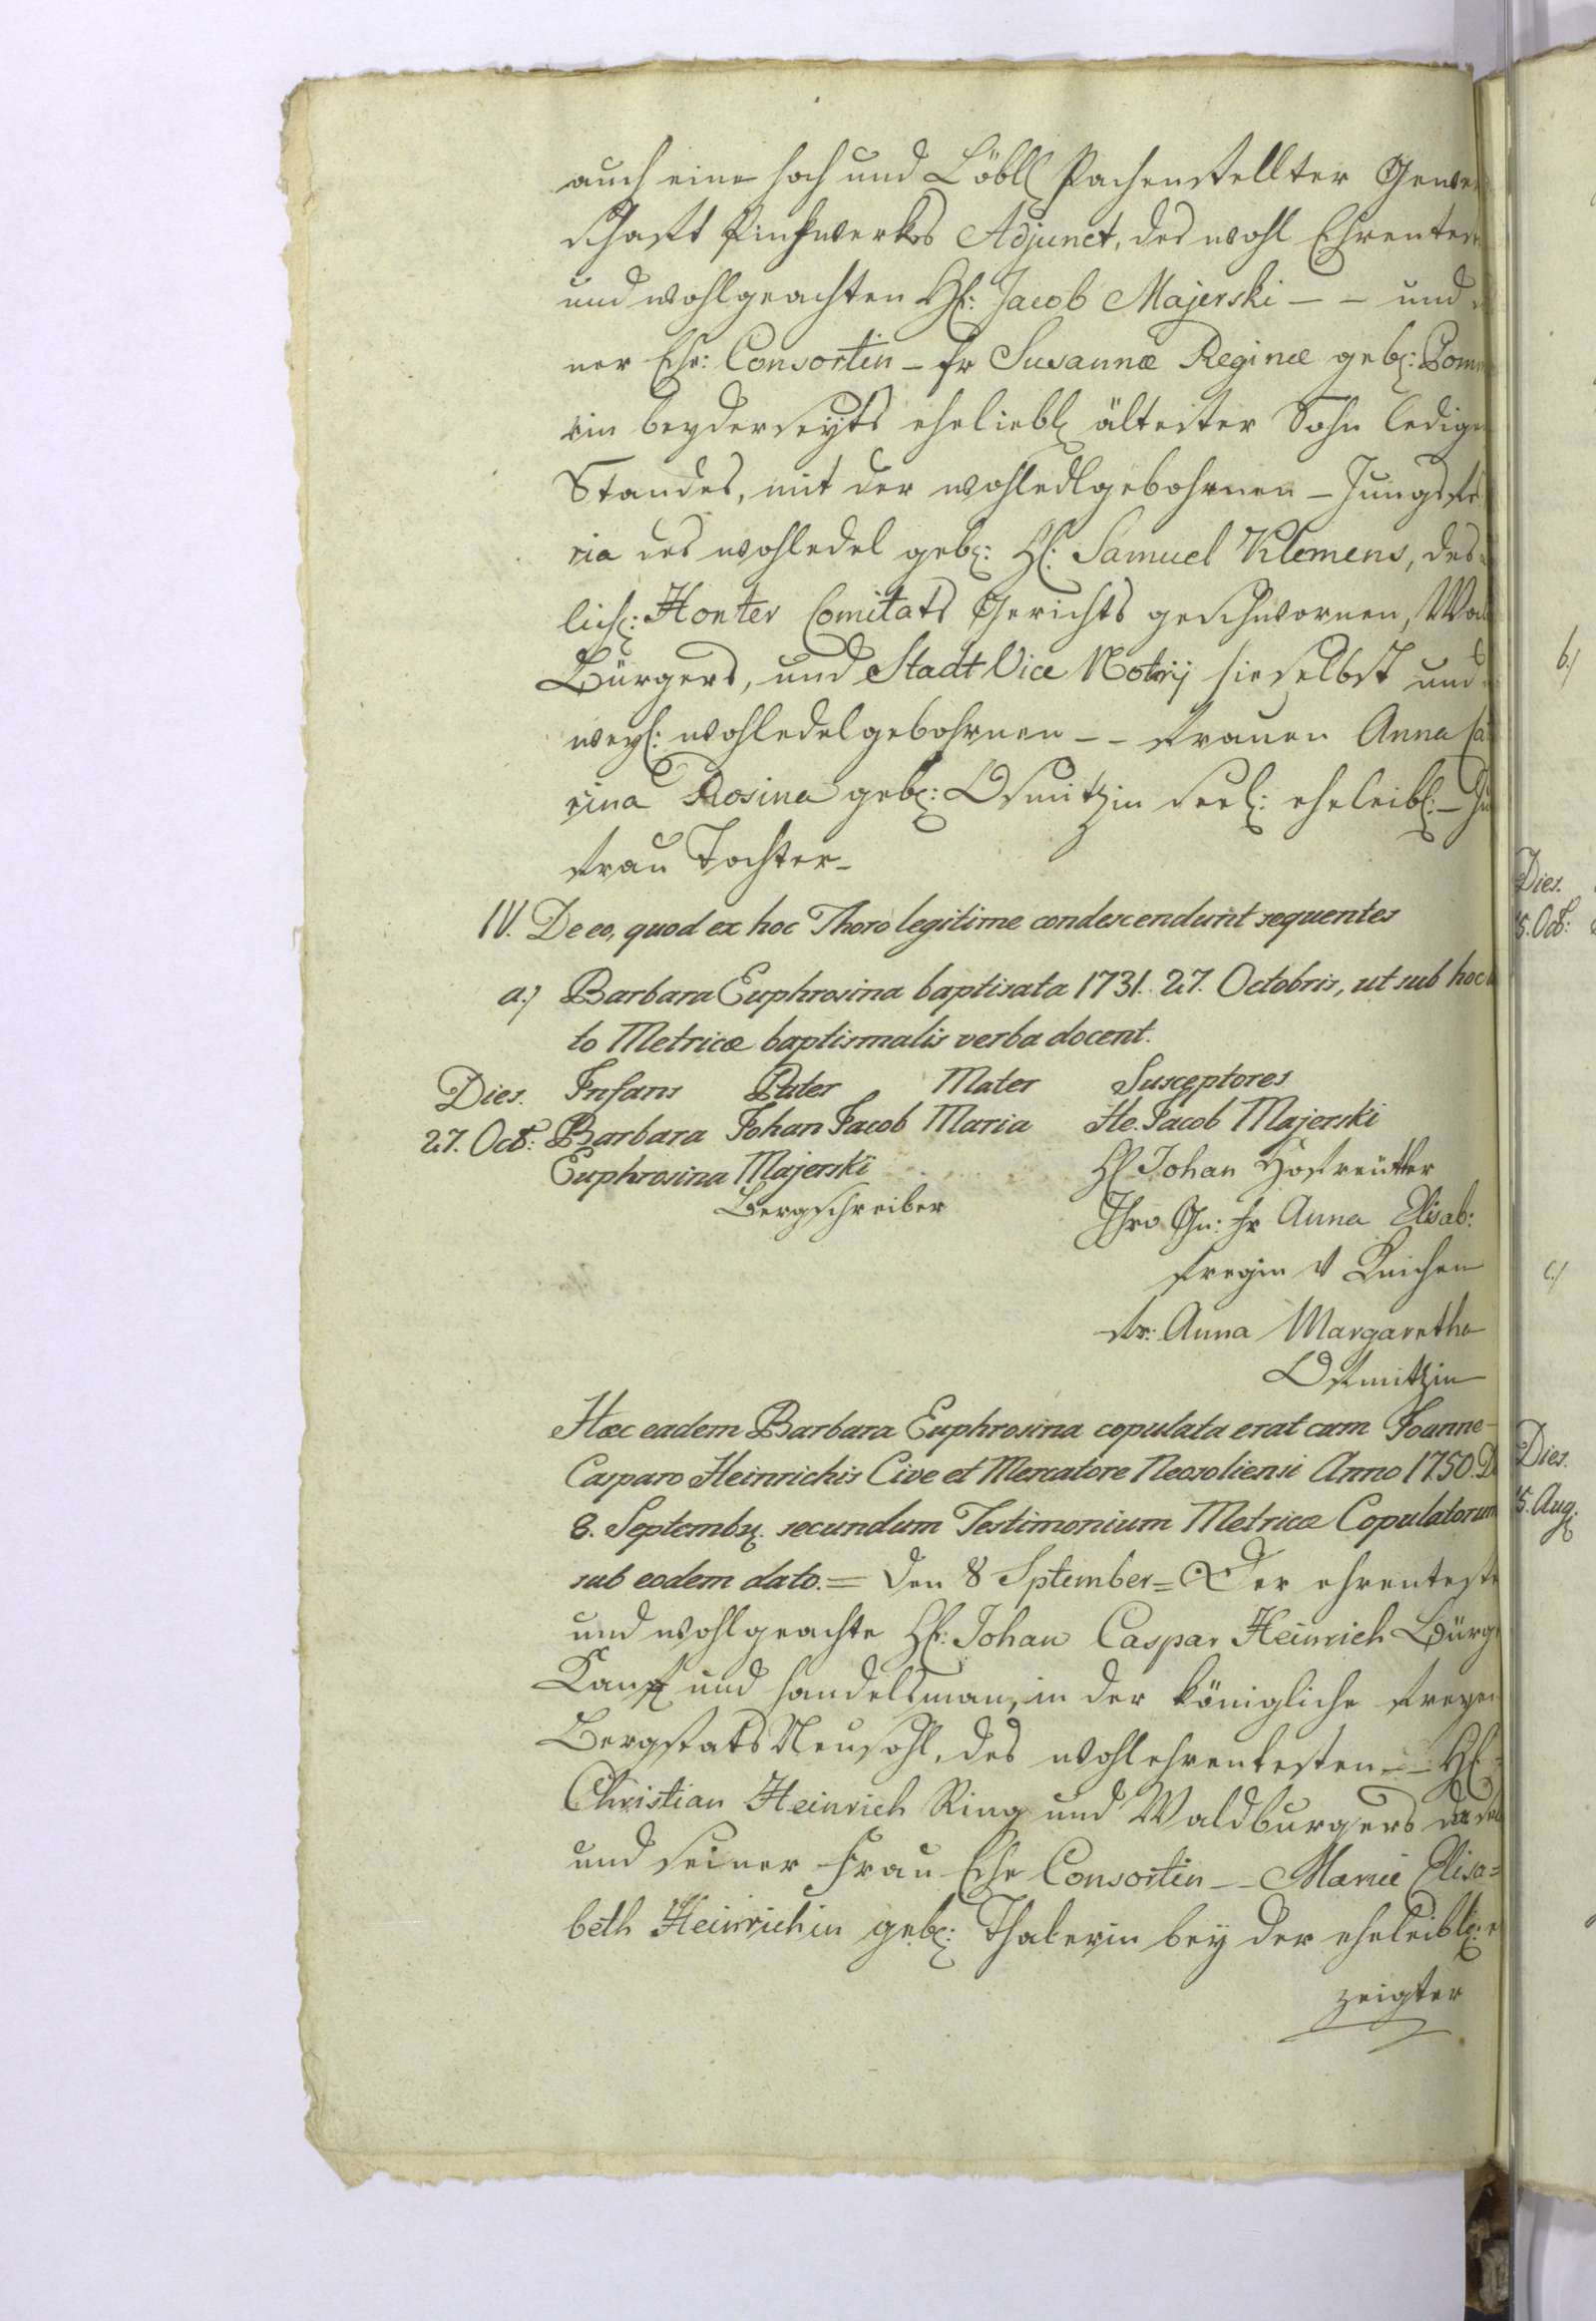 auch eine hoch und Löbl Pachenstellter Gewer
schaft Pinhwerks Adjunct, des wohl Ehrenvest
und wohlgeachten H: Jacob Majerski – – und
ner Ehe: Consortin – fr Susannæ Reginæ geb: Pom
rin beyderseyts eheliebl ältester Sohn ledigen
Standes, mit der wohledlgebohrnen – Jungf
ria des wohledel geb: H: Samuel Klemens, des
lich: Honter Comitats Gerichts geschwornen, Wa
Bürgers, und Stadt Vice Notarij hieselbst und
weyl: wohledelgebohrnen – – frauen Anna Ca
rina Rosina geb: Osmitzin seel: eheleibl: – Ju
frau Tochter –
IV. De eo, quod ex hoc Thoro legitime condescendunt sequentes
a.) Barbara Euphrosina baptisata 1731. 27. Octobris, ut sub hoc
to Metricæ baptismalis verba docent.
Dies. Infans Pater Mater Susceptores
27. Oct: Barbara Johan Jacob Maria He. Jacob Majerski
Euphrosina Majerski H Johan Hostreütter
Bergschreiber Ihro Gn: fr Anna Elisab:
freyin v
fr: Anna Margaretha
Osmitzin
Hæc eadem Barbara Euphrosina copulata erat cum Joanne
Casparo Heinrichis Cive et Mercatore Neosoliensi Anno 1750. D
8. Septembr. secundum Testimonium Metricæ Copulatorum
sub eodem dato. = Den 8 Sptember = Der ehrenveste
und wohlgeachte H: Johan Caspar Heinrich Bürg
Kauf und handelsman, in der königliche freyen
Bergstats Neusohl, des wohlehrenvesten – – H:
Christian Heinrich Ring und Waldburgers
und seiner Frau Ehe Consortin – – Mariæ Elisa=
beth Heinrichin geb: Thalerin bey der eheleibl:
zeigter
b.)
Dies.
15. Oct:
c.)
Dies.
15. Aug.